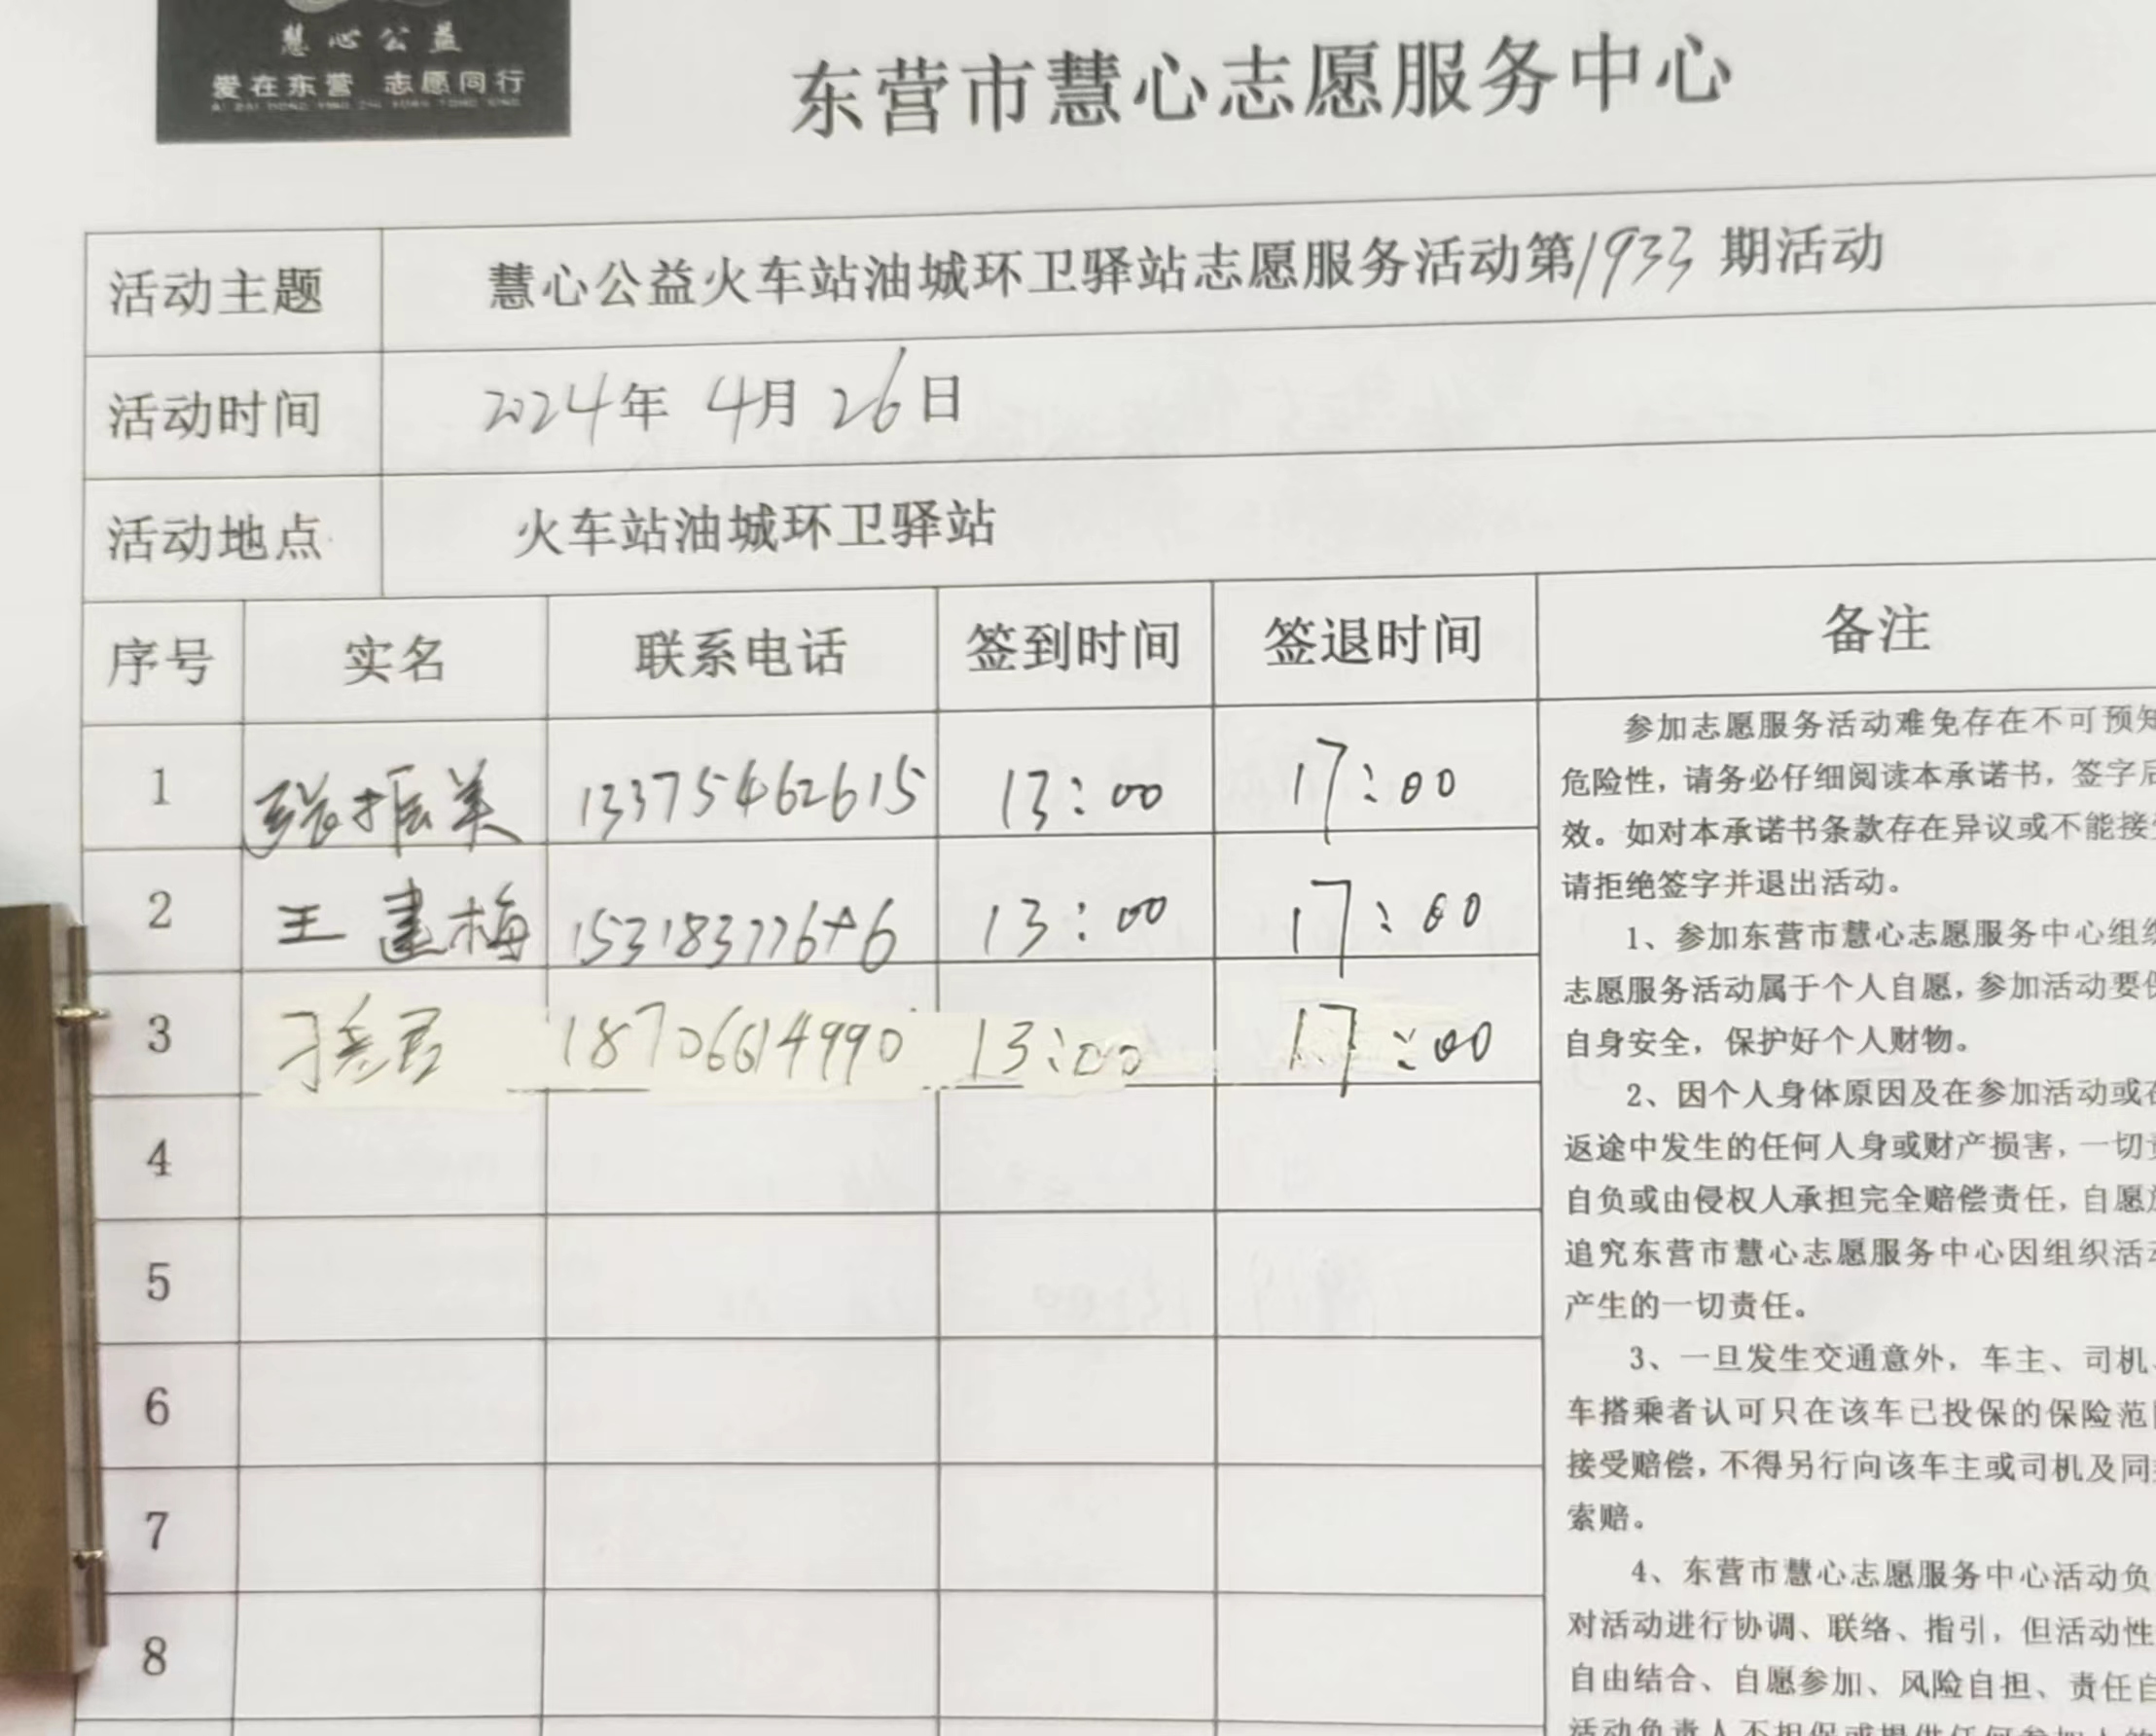 慧心公益
爱在东营 志愿同行
AI ZAI DONG YING ZHI YUAN TONG XING
东营市慧心志愿服务中心
活动主题 慧心公益火车站油城环卫驿站志愿服务活动第1933期活动
活动时间 2024年 4月 26日
活动地点 火车站油城环卫驿站
序号 实名 联系电话 签到时间 签退时间 备注
1 张振美 13375462615 13:00 17:00
2 王建梅 13:00 17:00
3 18706614990 13:00 17:00
4
5
6
7
8
参加志愿服务活动难免存在不可预知
危险性，请务必仔细阅读本承诺书，签字后
效。如对本承诺书条款存在异议或不能接受
请拒绝签字并退出活动。
1、参加东营市慧心志愿服务中心组织
志愿服务活动属于个人自愿，参加活动要保
自身安全，保护好个人财物。
2、因个人身体原因及在参加活动或在
返途中发生的任何人身或财产损害，一切责
自负或由侵权人承担完全赔偿责任，自愿放
追究东营市慧心志愿服务中心因组织活动
产生的一切责任。
3、一旦发生交通意外，车主、司机、
车搭乘者认可只在该车已投保的保险范围
接受赔偿，不得另行向该车主或司机及同乘
索赔。
4、东营市慧心志愿服务中心活动负
对活动进行协调、联络、指引，但活动性
自由结合、自愿参加、风险自担、责任自
活动负责人不担保或提供任何参加人的